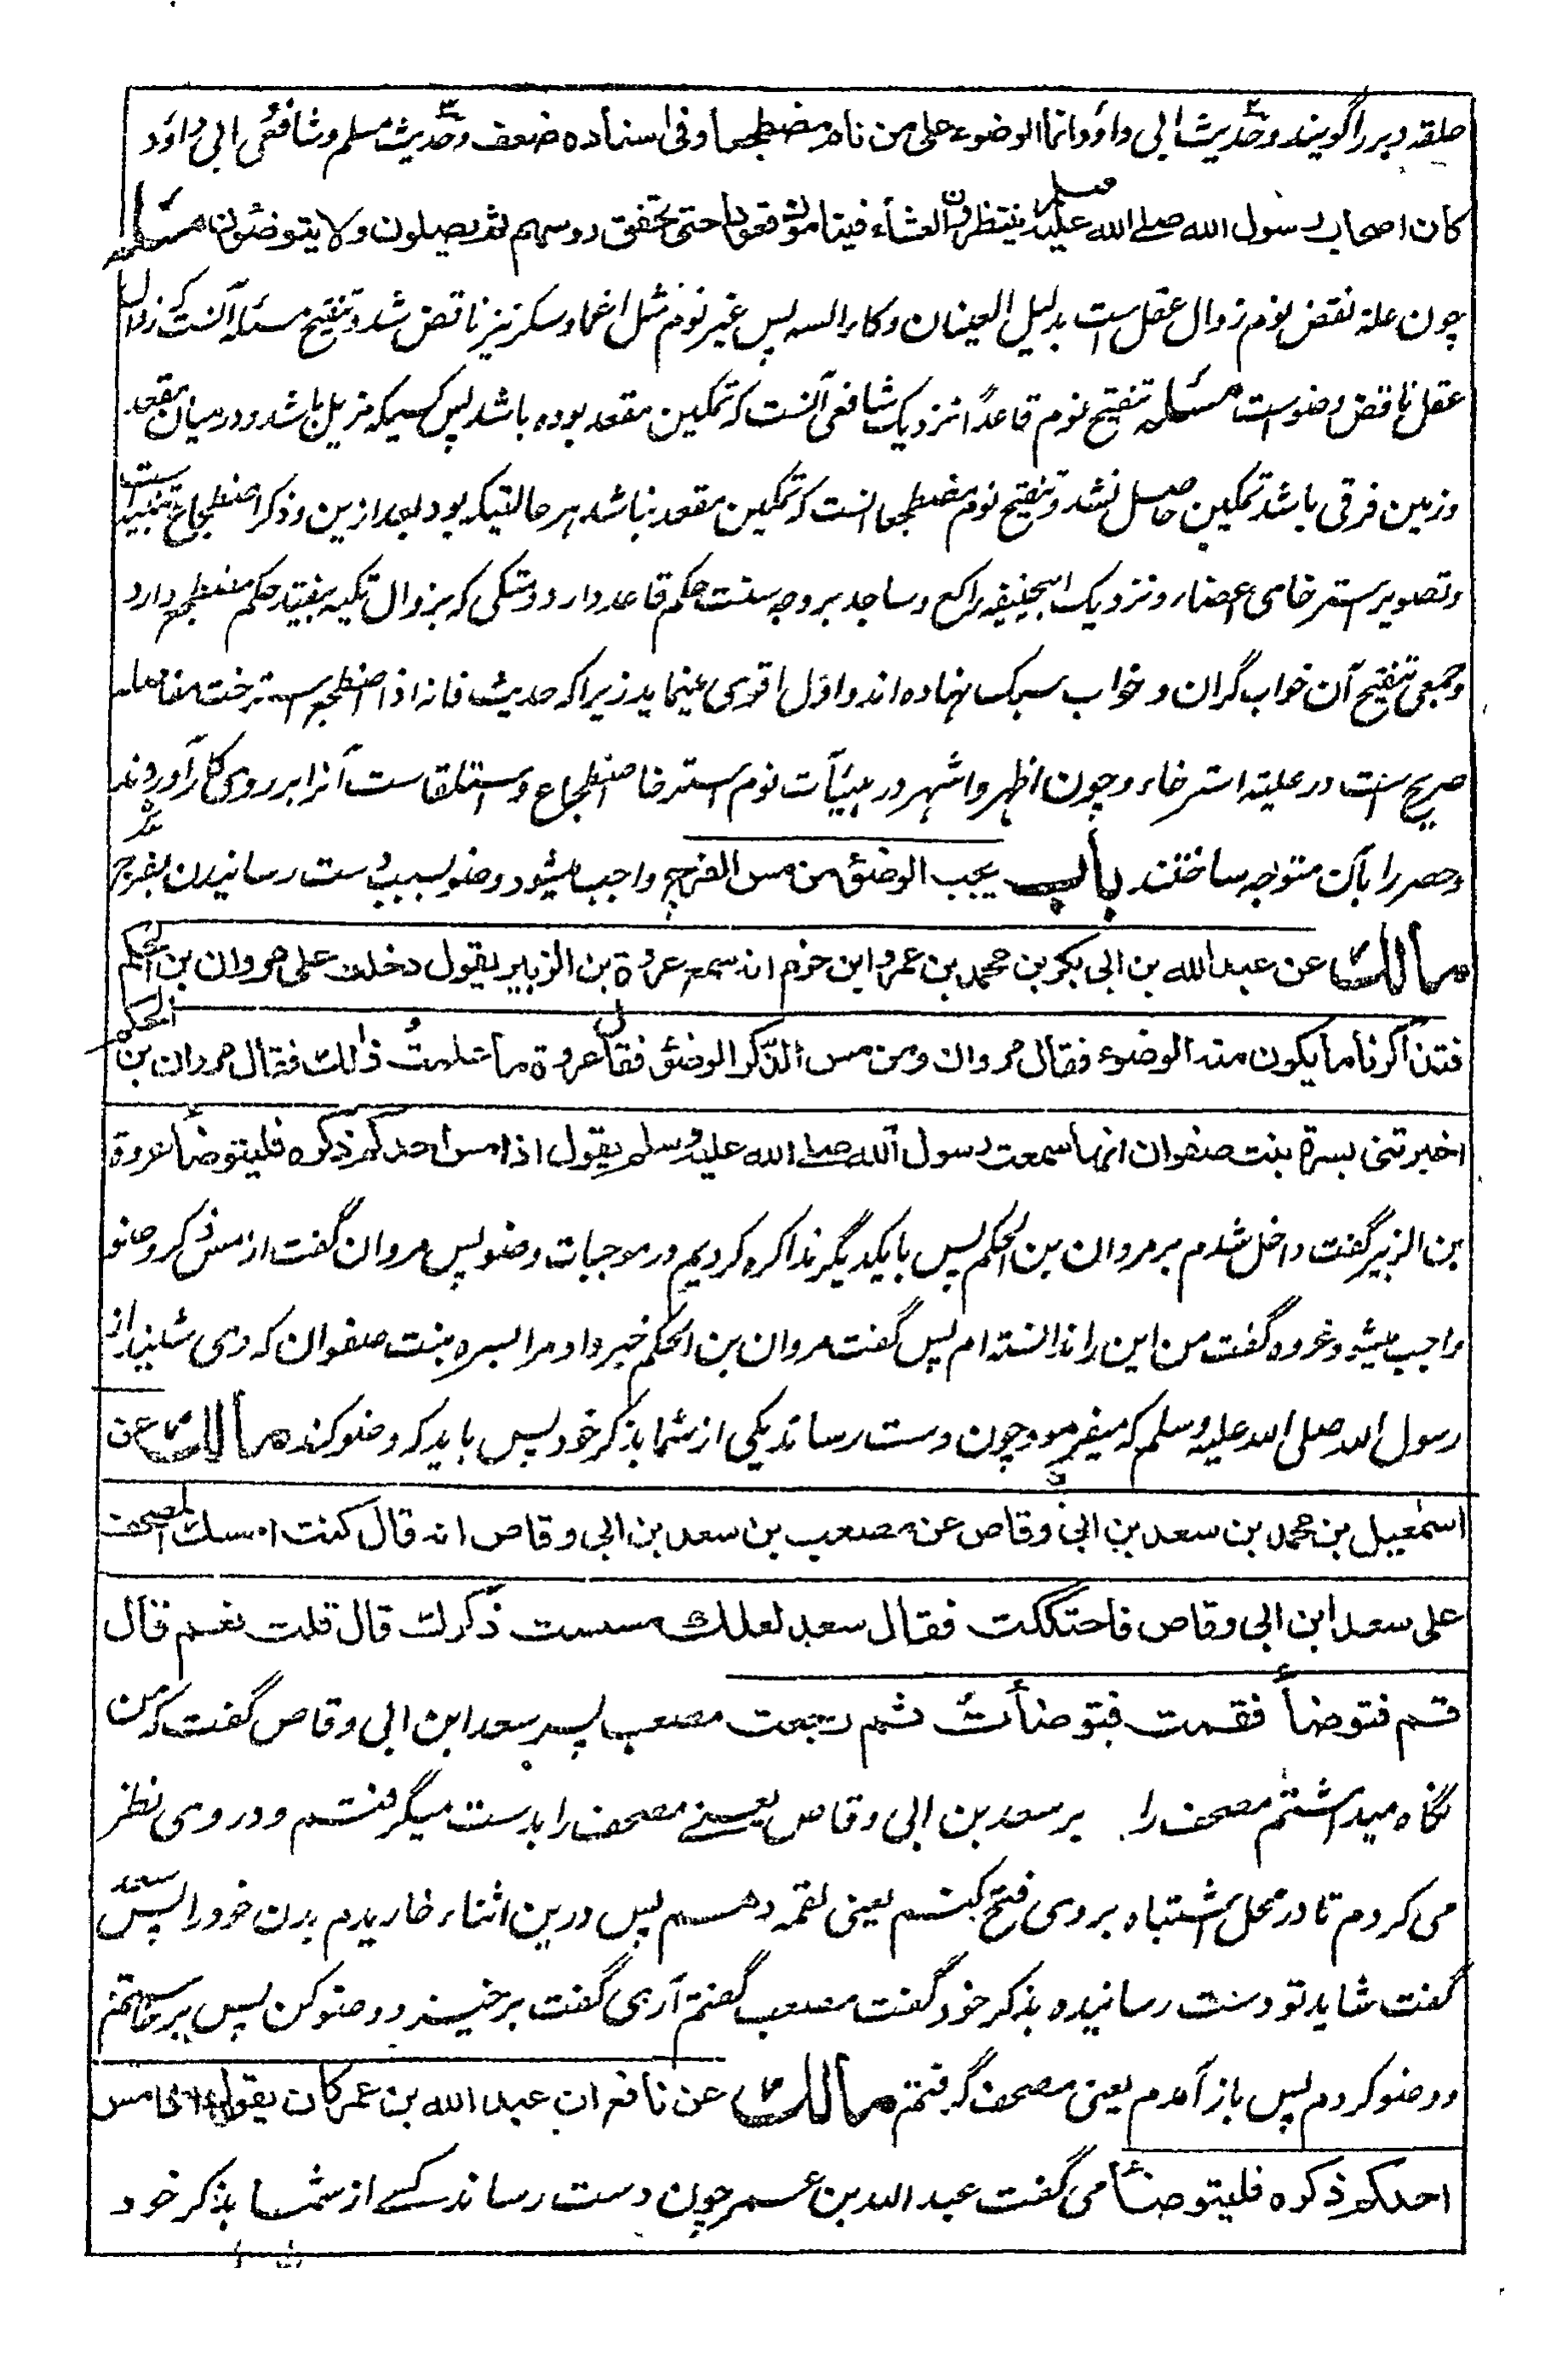 حلقه دبر را گویند وحدیث ابی داؤد انما الوضوء علی من نام مضطجعا وفی اسناده ضعف وحدیث مسلم وشافعی ابی داؤد
کان اصحاب رسول الله صلے الله علیه وسلم ینتظرون العشاء فینامون قعودا حتی تخفق روسهم ثم یصلون ولا یتوضئون مسئله
چون علة نقض نوم زوال عقل ست بدلیل العینان وکاء السه پس غیر نوم مثل اغما وسکر نیز ناقض شد وتنقیح مسئله آنست که زوال
عقل ناقض وضوست مسئله تنقیح نوم قاعداً نزدیک شافعی آنست که تمکین مقعد بوده باشد پس کسیکه هزیل باشد ودرمیان مقعد
وزمین فرقی باشد تمکین حاصل نشد وتنقیح نوم مضطجعا انست که تمکین مقعد نباشد بهر حالتیکه بود بعد ازین وذکر اضطجاع تنبیه است
وتصویر استرخای اعضا ونزدیک ابیحنیفه راکع وساجد بر وجه سنت حکم قاعد دارد ومتکی که بزوال تکیه بیفتد حکم مضطجع دارد
وجمعی تنقیح آن خواب گران وخواب سبک نهاده اند واول اقوی مینماید زیرا که حدیث فانه اذا اضطجع استرخت مفاصله
صریح ست در علیته استرخاء وچون اظهر واشهر در هیئآت نوم استرخا اضطجاع واستلقاست آنرا بر روی کار آوردند
وحصر را بآن متوجه ساختند باب یجب الوضوء من مس الفرج واجب میشود وضو بسبب دست رسانیدن بفرج
مالك عن عبد الله بن ابی بکر بن محمد بن عمرو ابن حزم انه سمع عروة بن الزبیر یقول دخلت علی مروان بن الحکم
فتذاکرنا ما یکون منه الوضوء فقال مروان ومن مس الذکر الوضوء فقال عروة ما علمتُ ذلك فقال مروان بن الحکم
اخبرتنی بسرة بنت صفوان انها سمعت رسول الله صلے الله علیه وسلم یقول اذا مس احدکم ذکره فلیتوضأ عروة
بن الزبیر گفت داخل شدم بر مروان بن الحکم پس بایکدیگر مذاکره کردیم در موجبات وضو پس مروان گفت از مس ذکر وضو
واجب میشود عروه گفت من این را ندانسته ام پس گفت مروان بن الحکم خبر داد مرا بسره بنت صفوان که وی شنید از
رسول الله صلی الله علیه وسلم که میفرمود چون دست رساند یکی از شما بذکر خود پس باید که وضو کند مالك عن
اسمٰعیل بن محمد بن سعد بن ابی وقاص عن مصعب بن سعد بن ابی وقاص انه قال کنت امسك المصحف
علی سعد ابن ابی وقاص فاحتککت فقال سعد لعلك مسست ذکرك قال قلت نعم قال
قم فتوضأ فقمت فتوضأت ثم رجعت مصعب پسر سعد ابن ابی وقاص گفت که من
نگاه میداشتم مصحف را بر سعد بن ابی وقاص یعنے مصحف را بدست میگرفتم ودر وی نظر
می کردم تا در محل اشتباه بر وی فتح کنم یعنی لقمه دهم پس درین اثناء خاریدم بدن خود را پس سعد
گفت شاید تو دست رسانیده بذکر خود گفت مصعب گفتم آری گفت برخیز ووضو کن پس برخاستم
ووضو کردم پس باز آمدم یعنی مصحف گرفتم مالك عن نافع ان عبد الله بن عمر کان یقول اذا مس
احدکم ذکره فلیتوضأ می گفت عبد الله بن عمر چون دست رساند کسے از شما بذکر خود